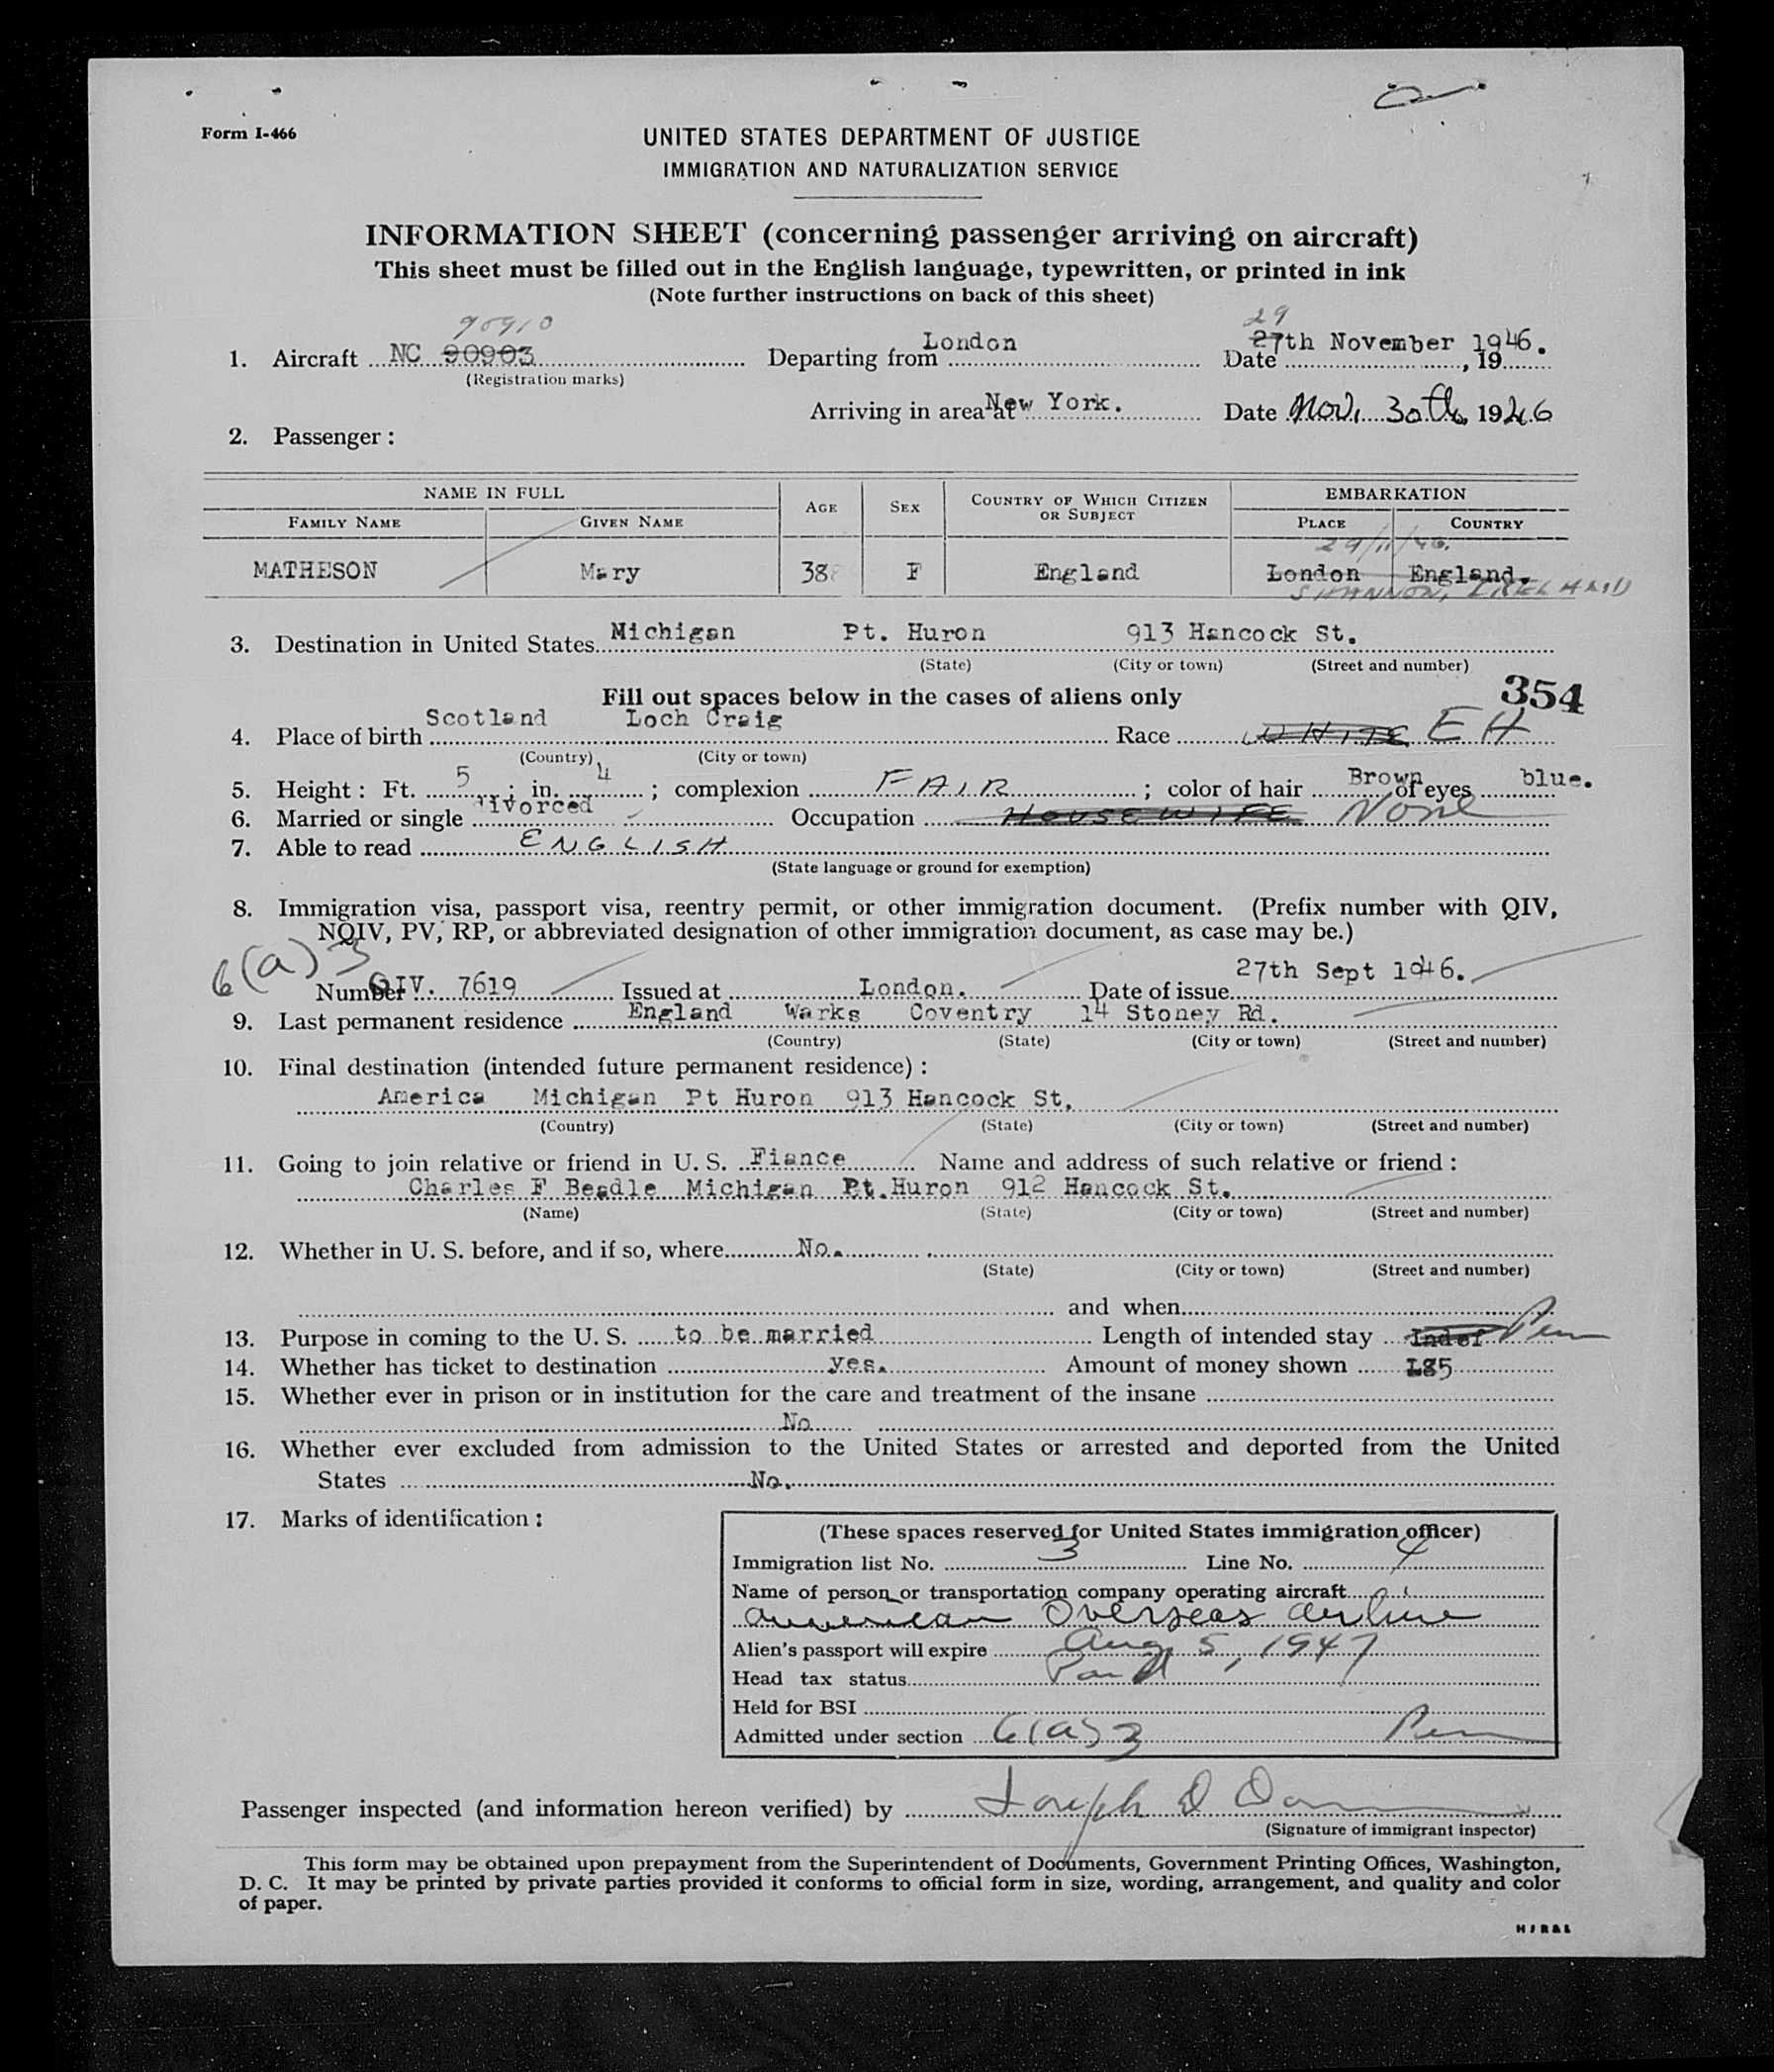 Form I-466
UNITED STATES DEPARTMENT OF JUSTICE
IMMIGRATION AND NATURALIZATION SERVICE
INFORMATION SHEET (concerning passenger arriving on aircraft)
This sheet must be filled out in the English language, typewritten, or printed in ink
(Note further instructions on back of this sheet)
90910 29
1. Aircraft NC 90903 Departing from London Date 27th November 1946. , 19
(Registration marks)
Arriving in area at New York. Date Nov. 30th, 1946
2. Passenger :
NAME IN FULL AGE SEX COUNTRY OF WHICH CITIZEN OR SUBJECT EMBARKATION
FAMILY NAME GIVEN NAME PLACE COUNTRY
29/11/46.
MATHESON Mary 38 F England London England.
SHANNON, IRELAND
3. Destination in United States Michigan Pt. Huron 913 Hancock St.
(State) (City or town) (Street and number)
Fill out spaces below in the cases of aliens only 354
4. Place of birth Scotland Loch Craig Race WHITE EH
(Country) (City or town)
5. Height : Ft. 5 ; in. 4 ; complexion FAIR ; color of hair Brown of eyes blue.
6. Married or single divorced Occupation HOUSEWIFE None
7. Able to read ENGLISH
(State language or ground for exemption)
8. Immigration visa, passport visa, reentry permit, or other immigration document. (Prefix number with QIV,
NQIV, PV, RP, or abbreviated designation of other immigration document, as case may be.)
6(a)3
Number QIV. 7619 Issued at London. Date of issue 27th Sept 1946.
9. Last permanent residence England Warks Coventry 14 Stoney Rd.
(Country) (State) (City or town) (Street and number)
10. Final destination (intended future permanent residence) :
America Michigan Pt Huron 913 Hancock St.
(Country) (State) (City or town) (Street and number)
11. Going to join relative or friend in U. S. Fiance Name and address of such relative or friend :
Charles F Beadle Michigan Pt. Huron 912 Hancock St.
(Name) (State) (City or town) (Street and number)
12. Whether in U. S. before, and if so, where No.
(State) (City or town) (Street and number)
and when
13. Purpose in coming to the U. S. to be married Length of intended stay Indef Perm
14. Whether has ticket to destination yes. Amount of money shown L85
15. Whether ever in prison or in institution for the care and treatment of the insane
No
16. Whether ever excluded from admission to the United States or arrested and deported from the United
States No.
17. Marks of identification :
(These spaces reserved for United States immigration officer)
Immigration list No. 3 Line No. 4
Name of person or transportation company operating aircraft
American Overseas Airline
Alien's passport will expire Aug 5, 1947
Head tax status Paid
Held for BSI
Admitted under section 6(a)3 Perm
Passenger inspected (and information hereon verified) by Joseph D
(Signature of immigrant inspector)
This form may be obtained upon prepayment from the Superintendent of Documents, Government Printing Offices, Washington,
D. C. It may be printed by private parties provided it conforms to official form in size, wording, arrangement, and quality and color
of paper.